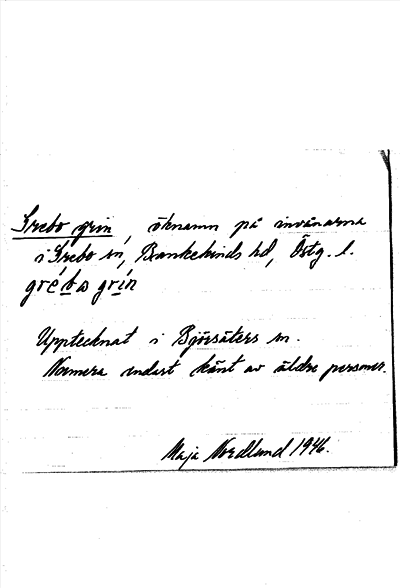 Grebo grin, öknamn på invånarna
i Grebo sn, Bankekinds hd, Östg. l.
gré̱bω gri̱n
Upptecknat i Björsäters sn.
Numera endast känt av äldre personer.
Maja Nordlund 1946.